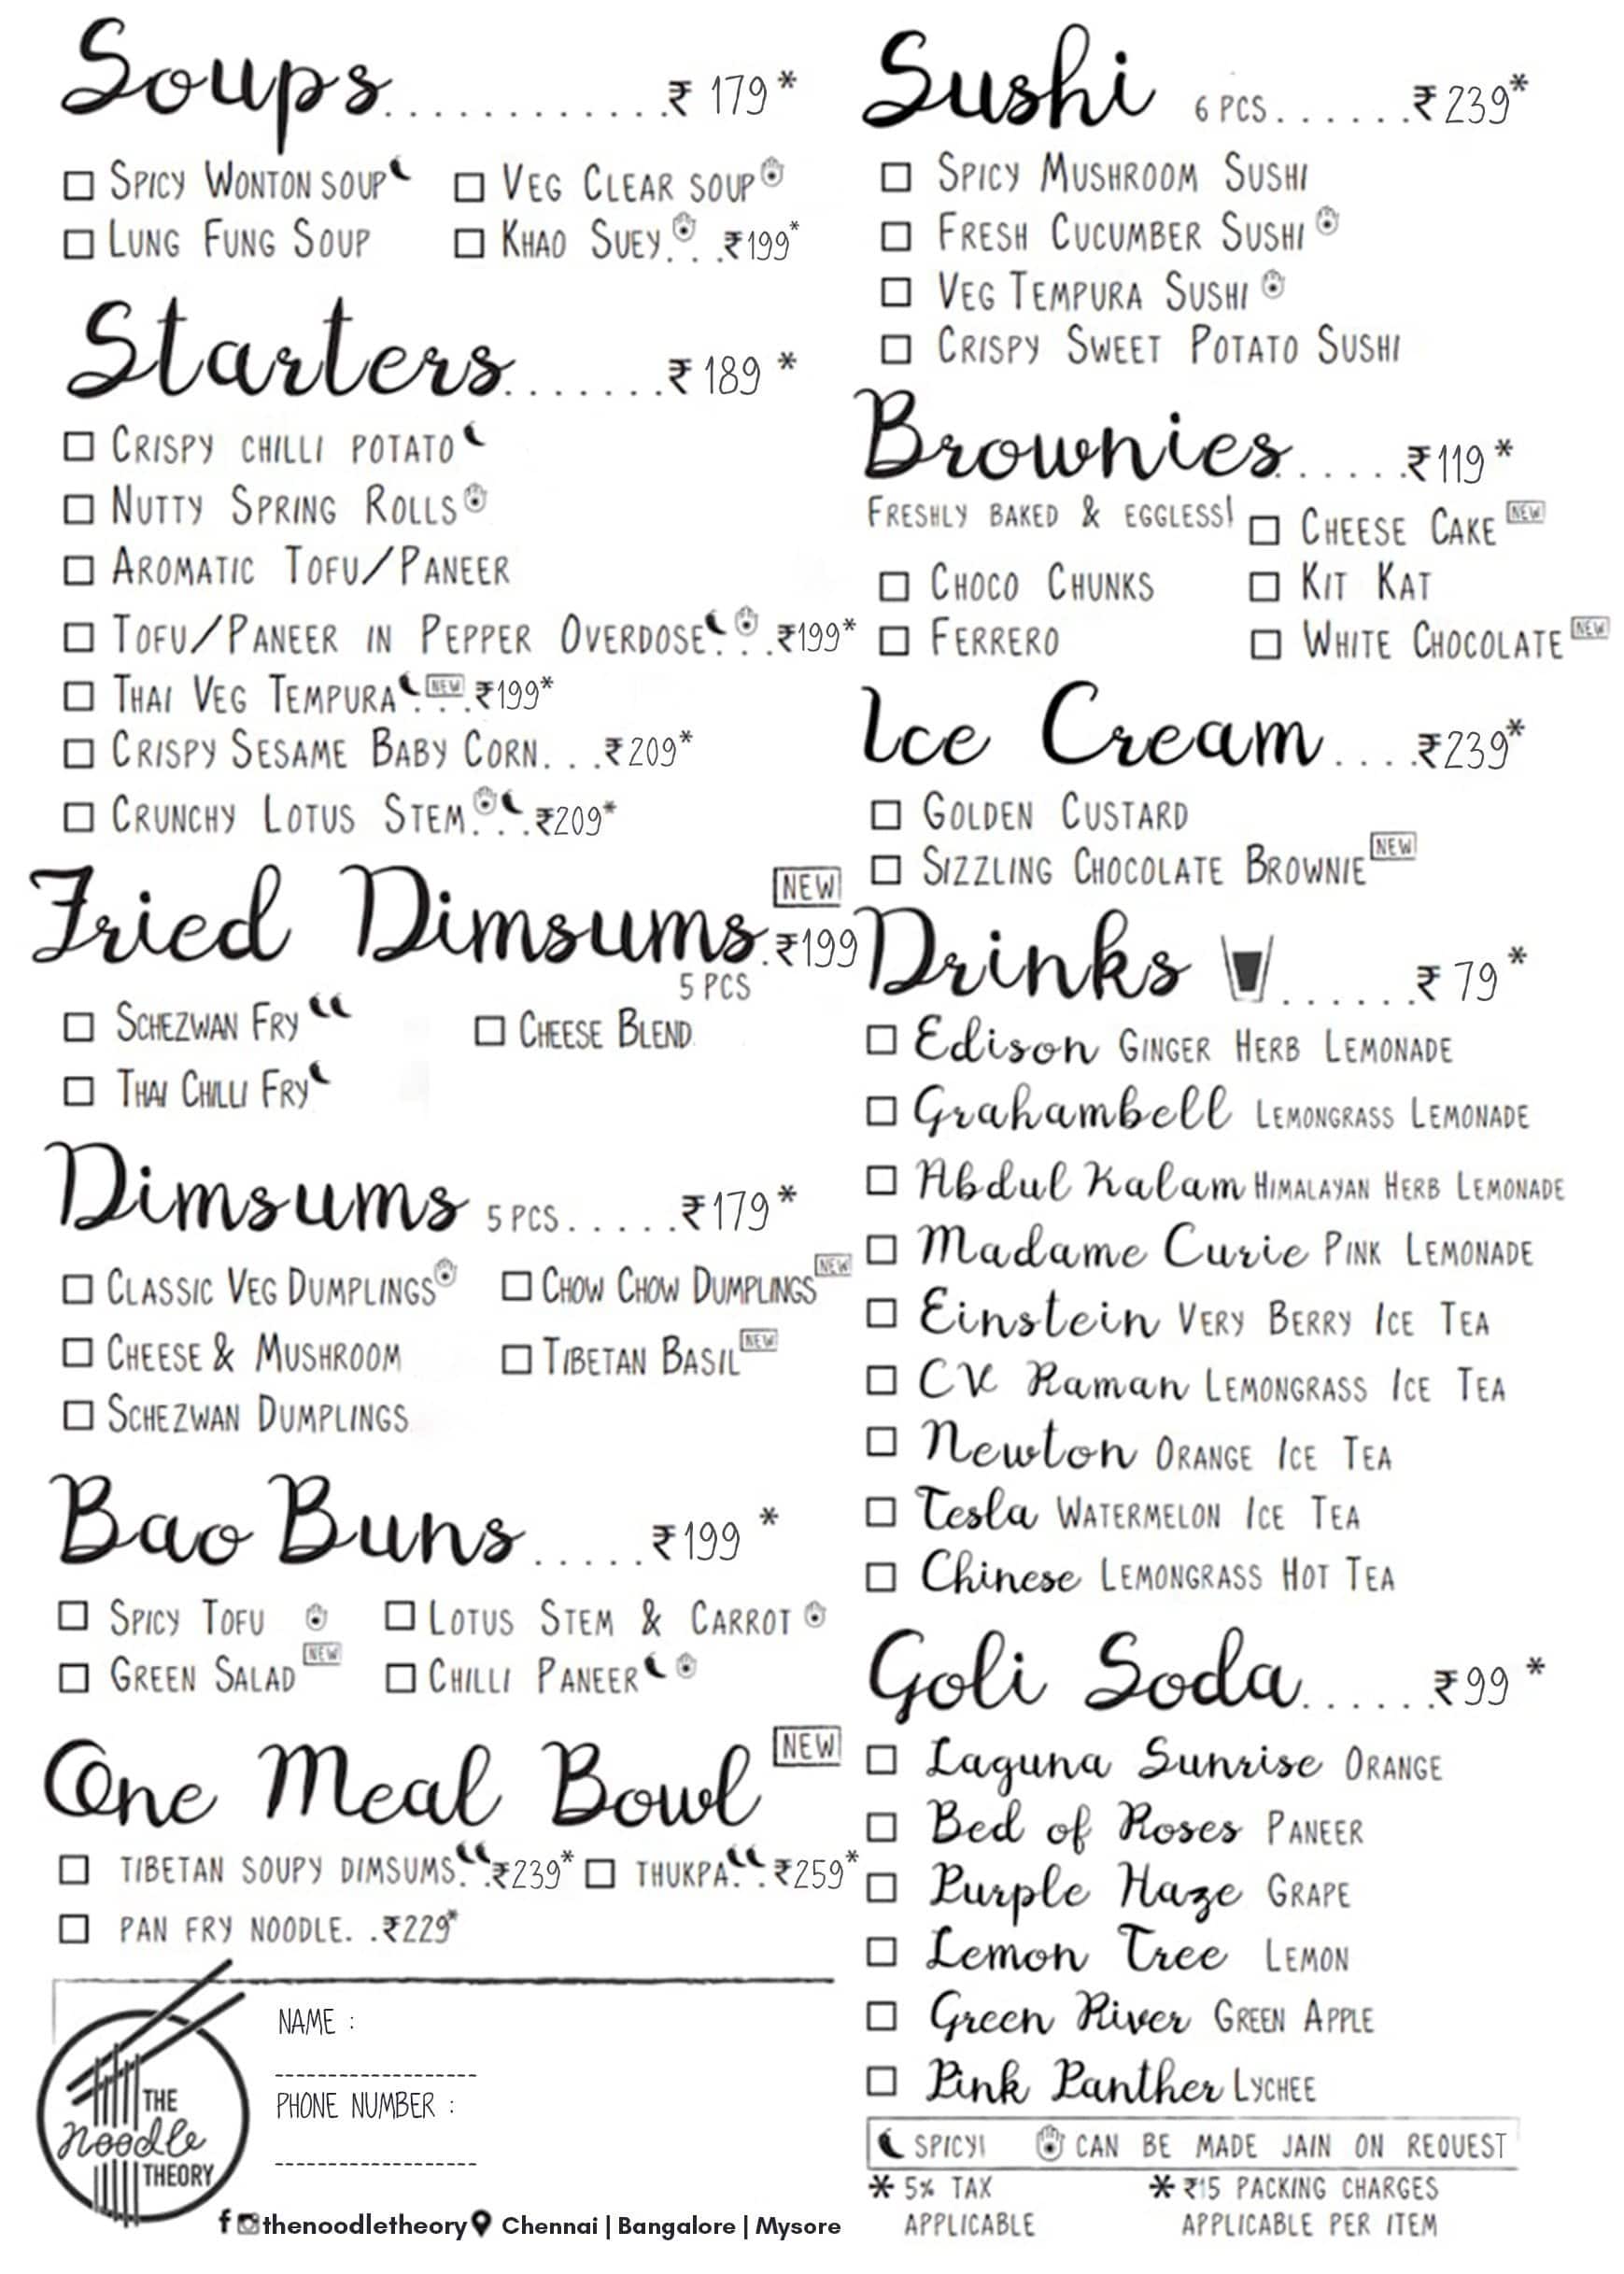 Soups............₹ 179*
SPICY WONTON SOUP
VEG CLEAR SOUP
LUNG FUNG SOUP
KHAO SUEY...₹199*
Starters.......₹ 189 *
CRISPY CHILLI POTATO
NUTTY SPRING ROLLS
AROMATIC TOFU/PANEER
TOFU/PANEER IN PEPPER OVERDOSE...₹199*
THAI VEG TEMPURA NEW...₹199*
CRISPY SESAME BABY CORN...₹209*
CRUNCHY LOTUS STEM...₹209*
Fried Dimsums.₹199 NEW
5 PCS
SCHEZWAN FRY
CHEESE BLEND
THAI CHILLI FRY
Dimsums 5 PCS.....₹179*
CLASSIC VEG DUMPLINGS
CHOW CHOW DUMPLINGS NEW
CHEESE & MUSHROOM
TIBETAN BASIL NEW
SCHEZWAN DUMPLINGS
Bao Buns.....₹199 *
SPICY TOFU
LOTUS STEM & CARROT
GREEN SALAD NEW
CHILLI PANEER
One Meal Bowl NEW
TIBETAN SOUPY DIMSUMS..₹239*
THUKPA..₹259*
PAN FRY NOODLE..₹229*
NAME :
PHONE NUMBER :
THE
noodle
THEORY
thenoodletheory Chennai | Bangalore | Mysore
Sushi 6 PCS......₹239*
SPICY MUSHROOM SUSHI
FRESH CUCUMBER SUSHI
VEG TEMPURA SUSHI
CRISPY SWEET POTATO SUSHI
Brownies.....₹119*
FRESHLY BAKED & EGGLESS!
CHEESE CAKE NEW
CHOCO CHUNKS
KIT KAT
FERRERO
WHITE CHOCOLATE NEW
Ice Cream....₹239*
GOLDEN CUSTARD
SIZZLING CHOCOLATE BROWNIE NEW
Drinks......₹ 79*
Edison GINGER HERB LEMONADE
Grahambell LEMONGRASS LEMONADE
Abdul Kalam HIMALAYAN HERB LEMONADE
Madame Curie PINK LEMONADE
Einstein VERY BERRY ICE TEA
CV Raman LEMONGRASS ICE TEA
Newton ORANGE ICE TEA
Tesla WATERMELON ICE TEA
Chinese LEMONGRASS HOT TEA
Goli Soda......₹99 *
Laguna Sunrise ORANGE
Bed of Roses PANEER
Purple Haze GRAPE
Lemon Tree LEMON
Green River GREEN APPLE
Pink Panther LYCHEE
SPICY! CAN BE MADE JAIN ON REQUEST
* 5% TAX
APPLICABLE
* ₹15 PACKING CHARGES
APPLICABLE PER ITEM